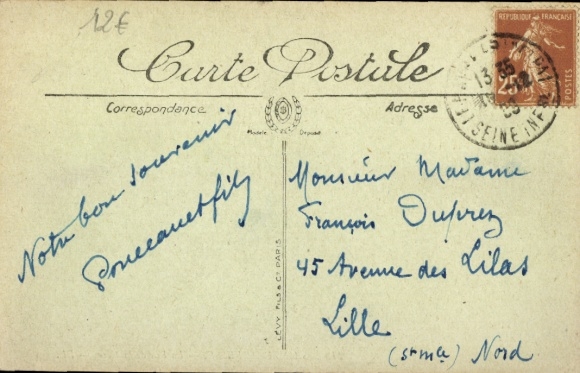 12€
Carte Postale
RÉPUBLIQUE FRANÇAISE
25
POSTES
13 35
SEINE INF
Correspondance
Adresse
Modèle Déposé
Notre bon souvenir
Monsieur Madame
François Duprez
45 Avenue des Lilas
Lille
(St Mce) Nord
LÉVY FILS & Cie PARIS